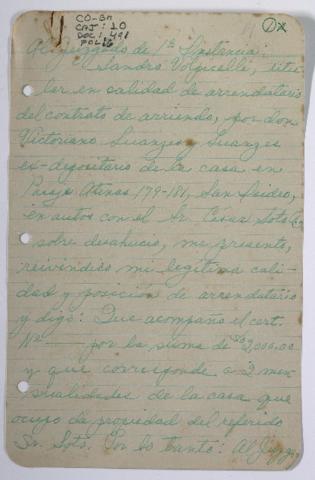 CO-BM
CAJ: 10
DOC: 491
FOL:
1
Al Juzgado de 1ª Instancia:
Sandro Volpicelli, titu-
lar en calidad de arrendatario
del contrato de arriendo, por don
Victoriano Suanzes y Suanzes
ex-depositario de la casa en
Pasaje Atenas 179-181, San Isidro,
en autos con el Sr. Cesar Soto
sobre desahucio, me presento,
reivindico mi legítima cali-
dad y posición de arrendatario
y digo: Que acompaño el cert.
Nº —— por la suma de $ 2,000.00
y que corresponde a 2 men-
sualidades de la casa que
ocupo de propiedad del referido
Sr. Soto. Por lo tanto: Al Juzg